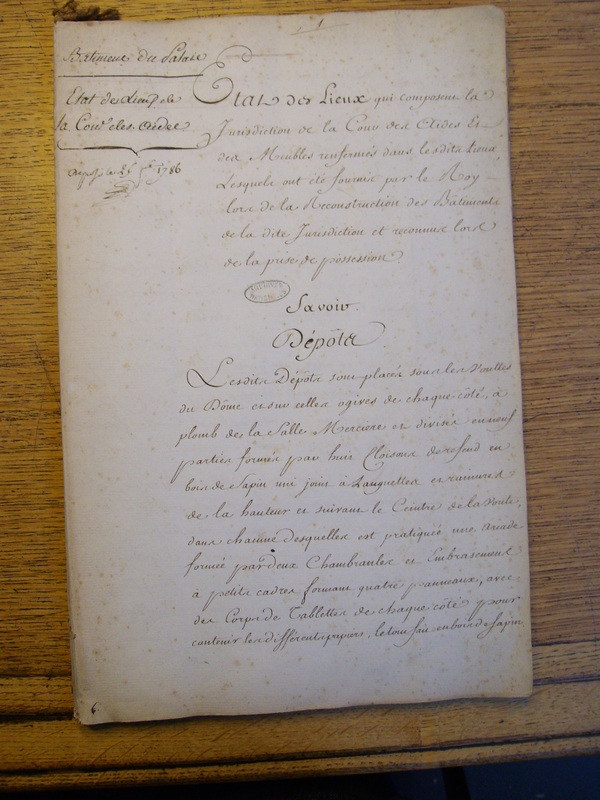 1
Batiment du Palais
Etat des Lieux de
la Cour des Aides
1786
Etat des Lieux qui composent la
Jurisdiction de la Cour des Aides Et
des Meubles renfermés dans lesdits Lieux
Lesquels ont été fournis par le Roy
lors de la Reconstruction des Bâtiments
de la dite Jurisdiction et reconnus lors
de la prise de possession.
Savoir.
Dépôts.
Lesdits Dépôts sont placés sous les Voultes
du Dôme et sur celles ogives de chaque côté, à
plomb de la Salle Merciere et divisés en neuf
parties formés par huit Cloisons de refend en
bois de Sapin uni joint à Languettes et rainures
de la hauteur et suivant le Ceintre de la Voute,
dans chacune desquelles est pratiqué une Arcade
formée par deux Chambranles et Embrasement
à petits cadres formant quatre panneaux, avec
des Corps de Tablettes de chaque côté pour
contenir les différents papiers, le tout fait en bois de Sapin
6